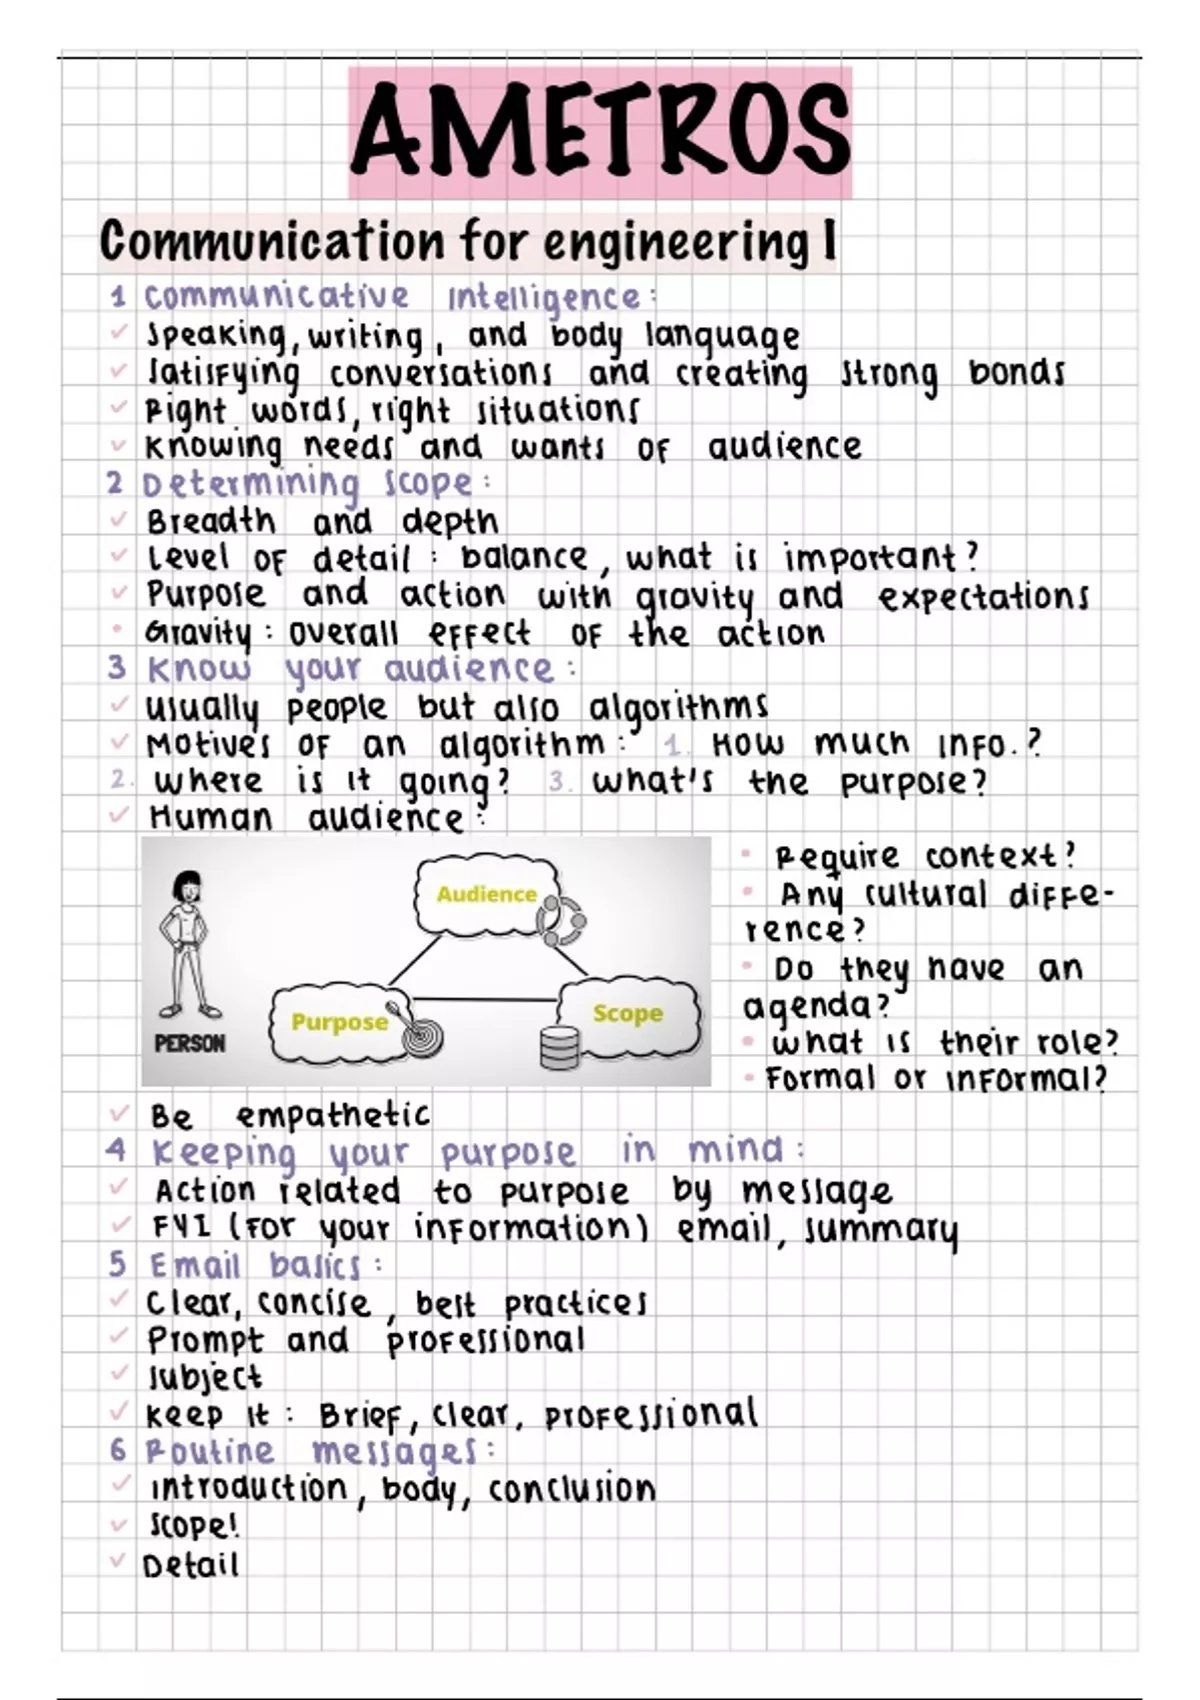 AMETROS
Communication for engineering I
1 Communicative Intelligence:
✓ Speaking, writing, and body language
✓ Satisfying conversations and creating strong bonds
✓ Right words, right situations
✓ Knowing needs and wants of audience
2 Determining scope:
✓ Breadth and depth
✓ Level of detail: balance, what is important?
✓ Purpose and action with gravity and expectations
• Gravity: overall effect of the action
3 Know your audience:
✓ Usually people but also algorithms
✓ Motives of an algorithm: 1. How much info.?
2. Where is it going? 3. What's the purpose?
✓ Human audience:
Audience
Purpose
Scope
PERSON
• Require context?
• Any cultural diffe-
rence?
• Do they have an
agenda?
• What is their role?
• Formal or informal?
✓ Be empathetic
4 Keeping your purpose in mind:
✓ Action related to purpose by message
✓ FYI (for your information) email, summary
5 Email basics:
✓ Clear, concise, best practices
✓ Prompt and professional
✓ Subject
✓ Keep it: Brief, clear, professional
6 Routine messages:
✓ Introduction, body, conclusion
✓ Scope!
✓ Detail